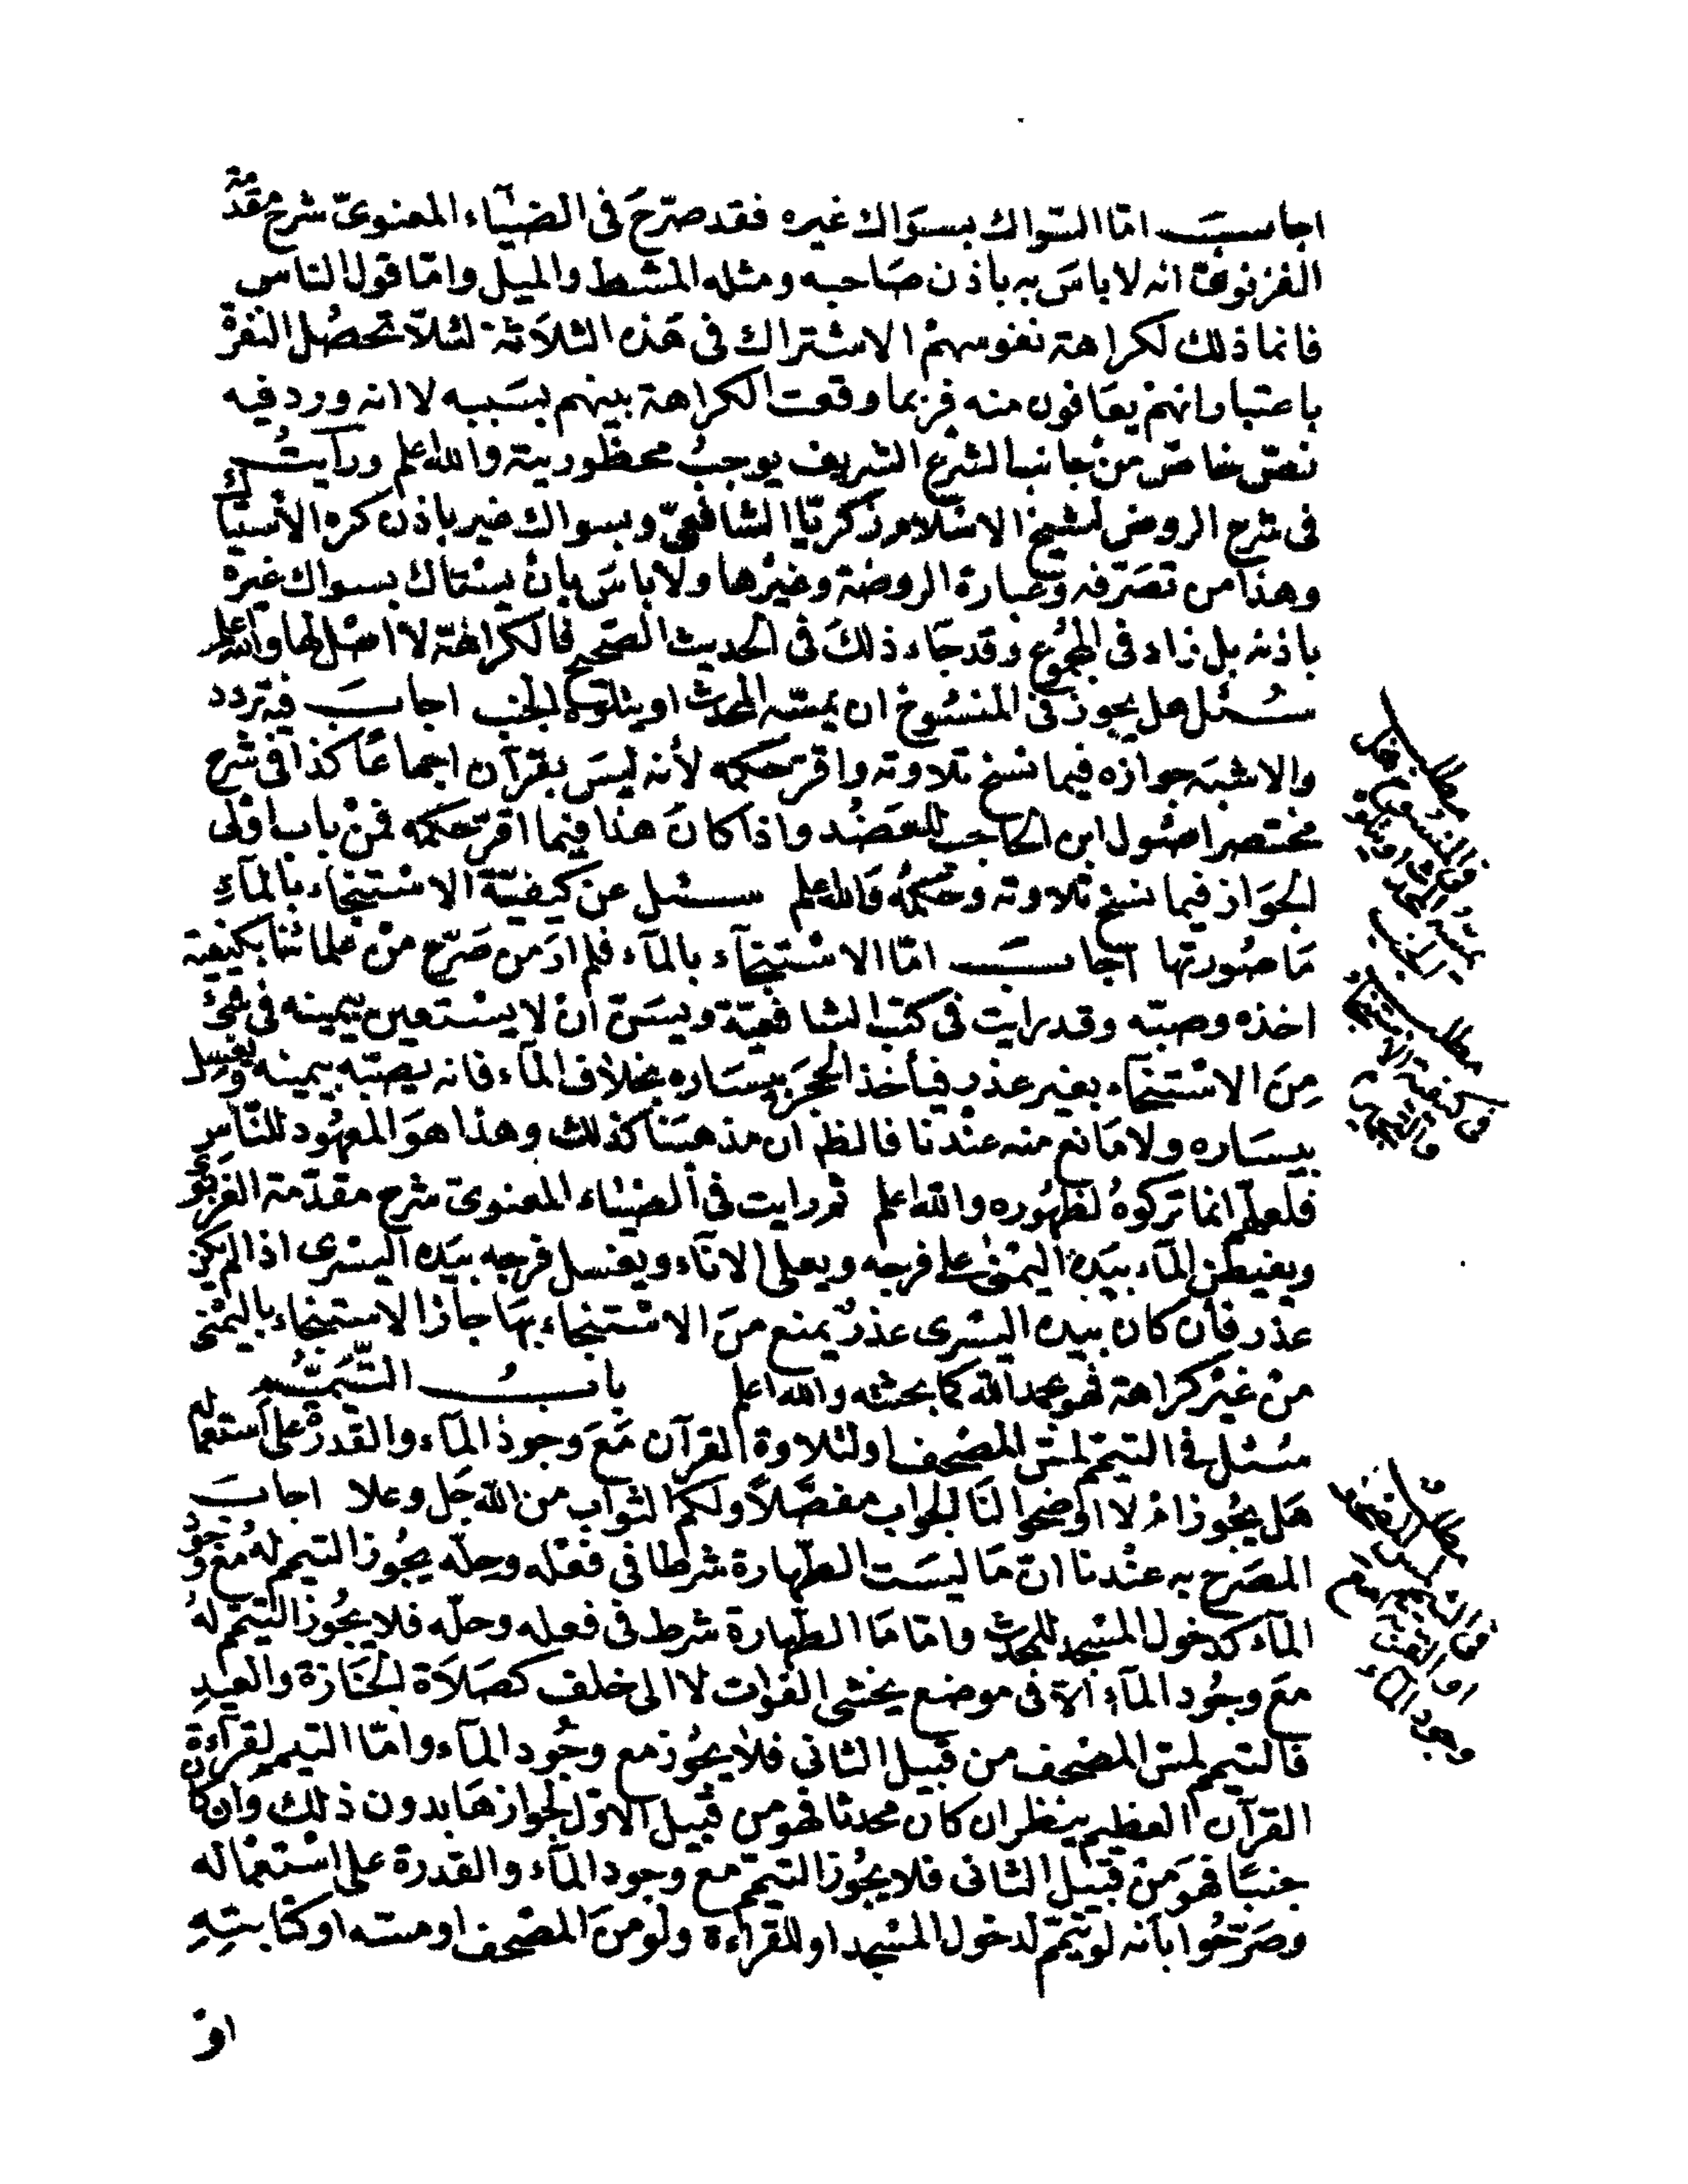 اجاب امّا السّواك بسوَاك غيره فقد صرّحَ فى الضيآء المعنوىّ شرح مقدّمة
الغزنوىّ انه لا باسَ به باذن صَاحبه ومثله المشط والميل وامّا قول الناس
فانما ذلك لكراهة نفوسهمْ الاشتراك فى هَذه الثلاَثة لئلاّ تحصُل النفرة
باعتبار انهمْ يعَافون منه فربما وقعت الكراهة بينهم بسَببه لا انه ورد فيه
نصّ خاصّ منْ جانب الشرْع الشريف يوجبُ محظوريية والله اعلم ورايتُ
فى شرح الروض لشيخ الاسْلام زكريّا الشافعىّ وبسواك غير باذن كره الاستياك
وهذا من تصَرّفه وعبارة الروضة وغيرُها ولا باسَ بان يسْتاك بسواك غيره
باذنه بل زاد فى المجمُوع وقد جَاء ذلكَ فى الحديث الصّحيح فالكراهَة لا اصْل لها والله اعلم
سُئل هل يجوز فى المنسُوخ ان يمسّه المحدث او يتلوه الجنب اجابَ فيه تردد
والاشبَه جوازه فيما نسخ تلاوته واقرّ حكمه لأنه ليسَ بقرآن اجماعًا كذا فى شرح
مختصر اصُول ابن الحاجب للعضُد واذا كانَ هذا فيما اقرّ حكمه فمنْ باب اوْلى
الجوَاز فيما نسخ تلاوته وحكمُه وَالله اعلم سئل عن كيفيّة الاسْتنجاء بالمآءِ
مَا صُورتها اجابَ امّا الاسْتنجآء بالمآء فلم ارَ من صَرّح منْ علمائنا بكيفية
اخذه وصبّه وقد رايت فى كتب الشافعيّة ويسَنّ انْ لا يسْتعين بيمينه فى شئ
مِنَ الاسْتنجآء بغير عذر فيأخذ الحجَر بيسَاره بخلاف المآء فانه يصبّه بيمينه ويغسل
بيسَاره ولا مَانع منه عنْدنا فالظ ان مذهبَنا كذلك وهذا هوَ المعهُود للنّاسِ
فلعلهم انما تركوهُ لظهُوره والله اعلم ثم رايت فى الضيَاء المعنوىّ شرح مقدّمة الغزنوىّ
ويفيض المآء بيَده اليمْنى على فرجه ويعلى الانآء ويغسل فرجه بيَده اليسْرى اذا لم يكن
عذر فان كان بيده اليسْرى عذرٌ يمنع منَ الاسْتنجاء بهَا جاز الاستنجاء باليمْنى
منْ غيْر كرَاهة فهو بحمد الله كما بحثته والله اعلم بابُ التّيَمُّم
سُئل فى التيمّم لمسّ المصْحف او لتلاوة القرآن مَعَ وجود المآء والقدرة على استعماله
هَل يجُوز امْ لا اوْضحوا لنَا الجواب مفصّلاً ولكم الثواب من الله جَل وعلا اجابَ
المصَرح به عنْدنا انّ مَا ليسَت الطّهارة شرطا فى فعْله وحِلّه يجُوز التيمم لهُ مع وجود
المآء كدخول المسْجد للمحدث وامّا مَا الطّهارة شرط فى فعله وحلّه فلا يجُوز التيمّم لهُ
معَ وجُود المآء الا فى موضع يخشى الفوات لا الى خلف كصَلاَة الجَنَازة والعيدِ
فالتيمم لمسّ المصْحف من قبيل الثانى فلا يجُوز مع وجُود المآء وامّا التيمم لقرآءة
القرآن العظيم ينظر ان كان محدثا فهو من قبيل الاوّل لجوازهَا بدون ذلك وان كان
جنبًا فهوَ منْ قبيل الثانى فلا يجُوز التيمّم مع وجود المآء والقدرة على اسْتعمَاله
وصَرّحُوا بأنه لو تيمّم لدخول المسْجد او للقراءة ولو منَ المصْحف او مسّه او كتابتِهِ
اوْ
مطلب هل
يجوز فى المنسوخ
ان يمسّه المحدث او يتلوه
الجنب
مطلب
فى كيفية الاستنجاء
مطلب
فى التيمم لمس المصحف
او القراءة مع
وجود الماء